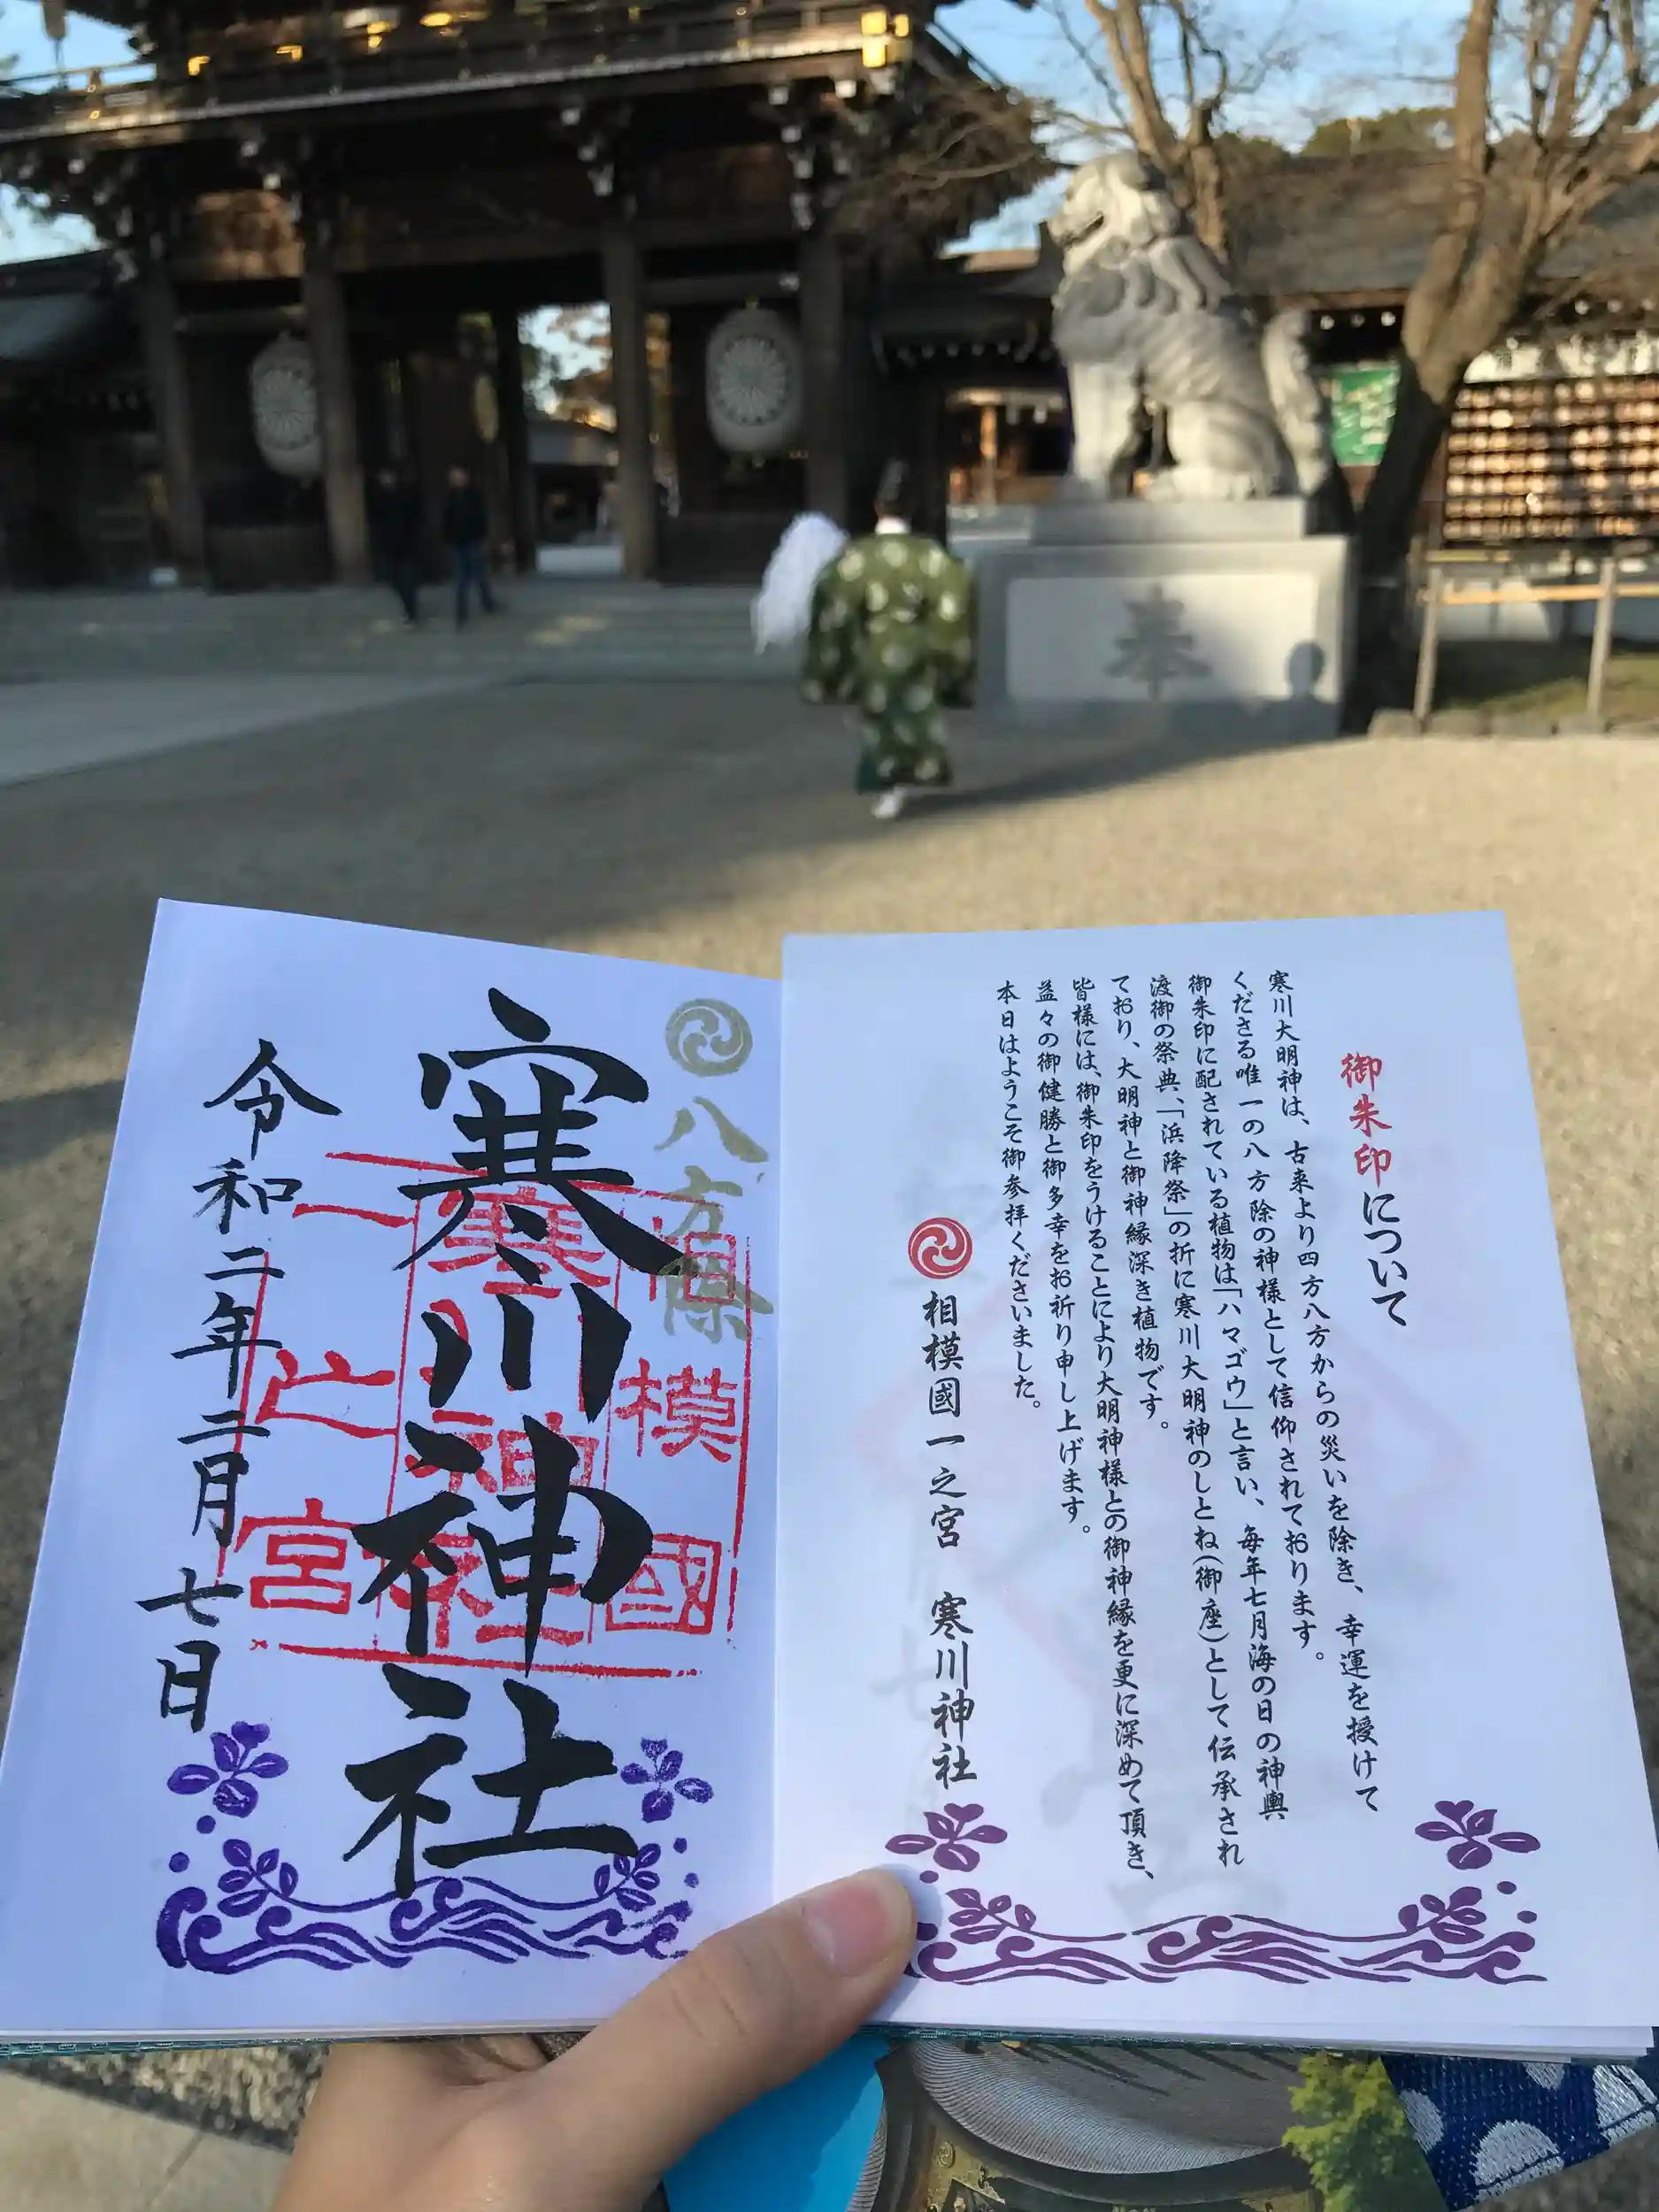 奉
八方除
寒川神社
令和二年二月七日
相模國
寒川神社
一之宮
御朱印について
寒川大明神は、古来より四方八方からの災いを除き、幸運を授けて
くださる唯一の八方除の神様として信仰されております。
御朱印に配されている植物は「ハマゴウ」と言い、毎年七月海の日の神輿
渡御の祭典、「浜降祭」の折に寒川大明神のしとね(御座)として伝承され
ており、大明神と御神縁深き植物です。
皆様には、御朱印をうけることにより大明神様との御神縁を更に深めて頂き、
益々の御健勝と御多幸をお祈り申し上げます。
本日はようこそ御参拝くださいました。
相模國一之宮 寒川神社